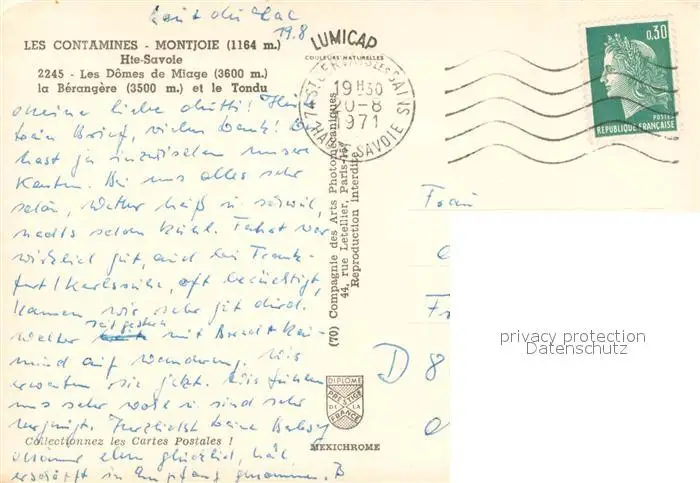 19.8
LES CONTAMINES - MONTJOIE (1164 m.)
Hte-Savoie
2245 - Les Dômes de Miage (3600 m.)
la Bérangère (3500 m.) et le Tondu
LUMICAP
COULEURS NATURELLES
19H30
20-8
1971
HAUTE SAVOIE
0,30
POSTES
REPUBLIQUE FRANÇAISE
Meine liebe Mutti! Heute
kam dein Brief, vielen Dank! Du
hast ja inzwischen unsere
Karten. Bei uns alles sehr
schön, Wetter heiß u. schwül,
nachts schon kühl. Fahrt war
wirklich gut, auch bei Frank-
furt/Karlsruhe, oft berüchtigt,
kamen wir sehr gut durch.
Walter seit gestern mit Berndt
auf Wanderung. Wir
erwarten sie jetzt. Wir fühlen
uns sehr wohl u. sind sehr
vergnügt. Herzlichst Deine
glücklich, hat
in Empfang genommen. B
(70) Compagnie des Arts Photomécaniques
44, rue Letellier, Paris-15e
Reproduction Interdite
Frau
D 8
DIPLOME
PRESTIGE
DE LA
FRANCE
MEXICHROME
Collectionnez les Cartes Postales !
privacy protection
Datenschutz